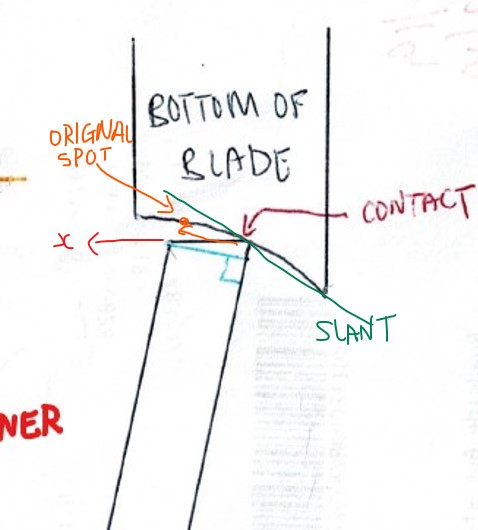 BOTTOM OF
BLADE
ORIGNAL
SPOT
CONTACT
x
SLANT
NER